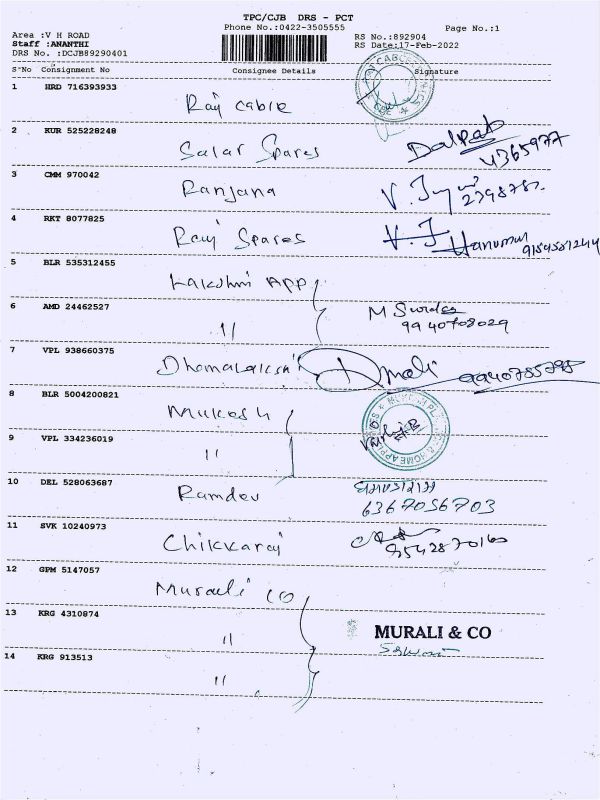 TPC/CJB DRS - PCT
Phone No.:0422-3505555
Page No.:1
Area :V H ROAD
Staff :ANANTHI
DRS No. :DCJB89290401
RS No.:892904
RS Date:17-Feb-2022
S'No Consignment No Consignee Details Signature
1 HRD 716393933 Raj Cable
2 KUR 525228248 Salar Spares Dalpat
4365977
3 CMM 970042 Ranjana
4 RKT 8077825 Raj Spares Hanuman
5 BLR 535312455 Lakshmi App
6 AMD 24462527 11 M
9940708029
7 VPL 938660375 Dhanalakshi Dmali 9940785798
8 BLR 5004200821 Mukesh
9 VPL 334236019 11
10 DEL 528063687 Ramdev
6367056703
11 SVK 10240973 Chikkaraj
9542870160
12 GPM 5147057 Murali CO
13 KRG 4310874 11 MURALI & CO
14 KRG 913513 11